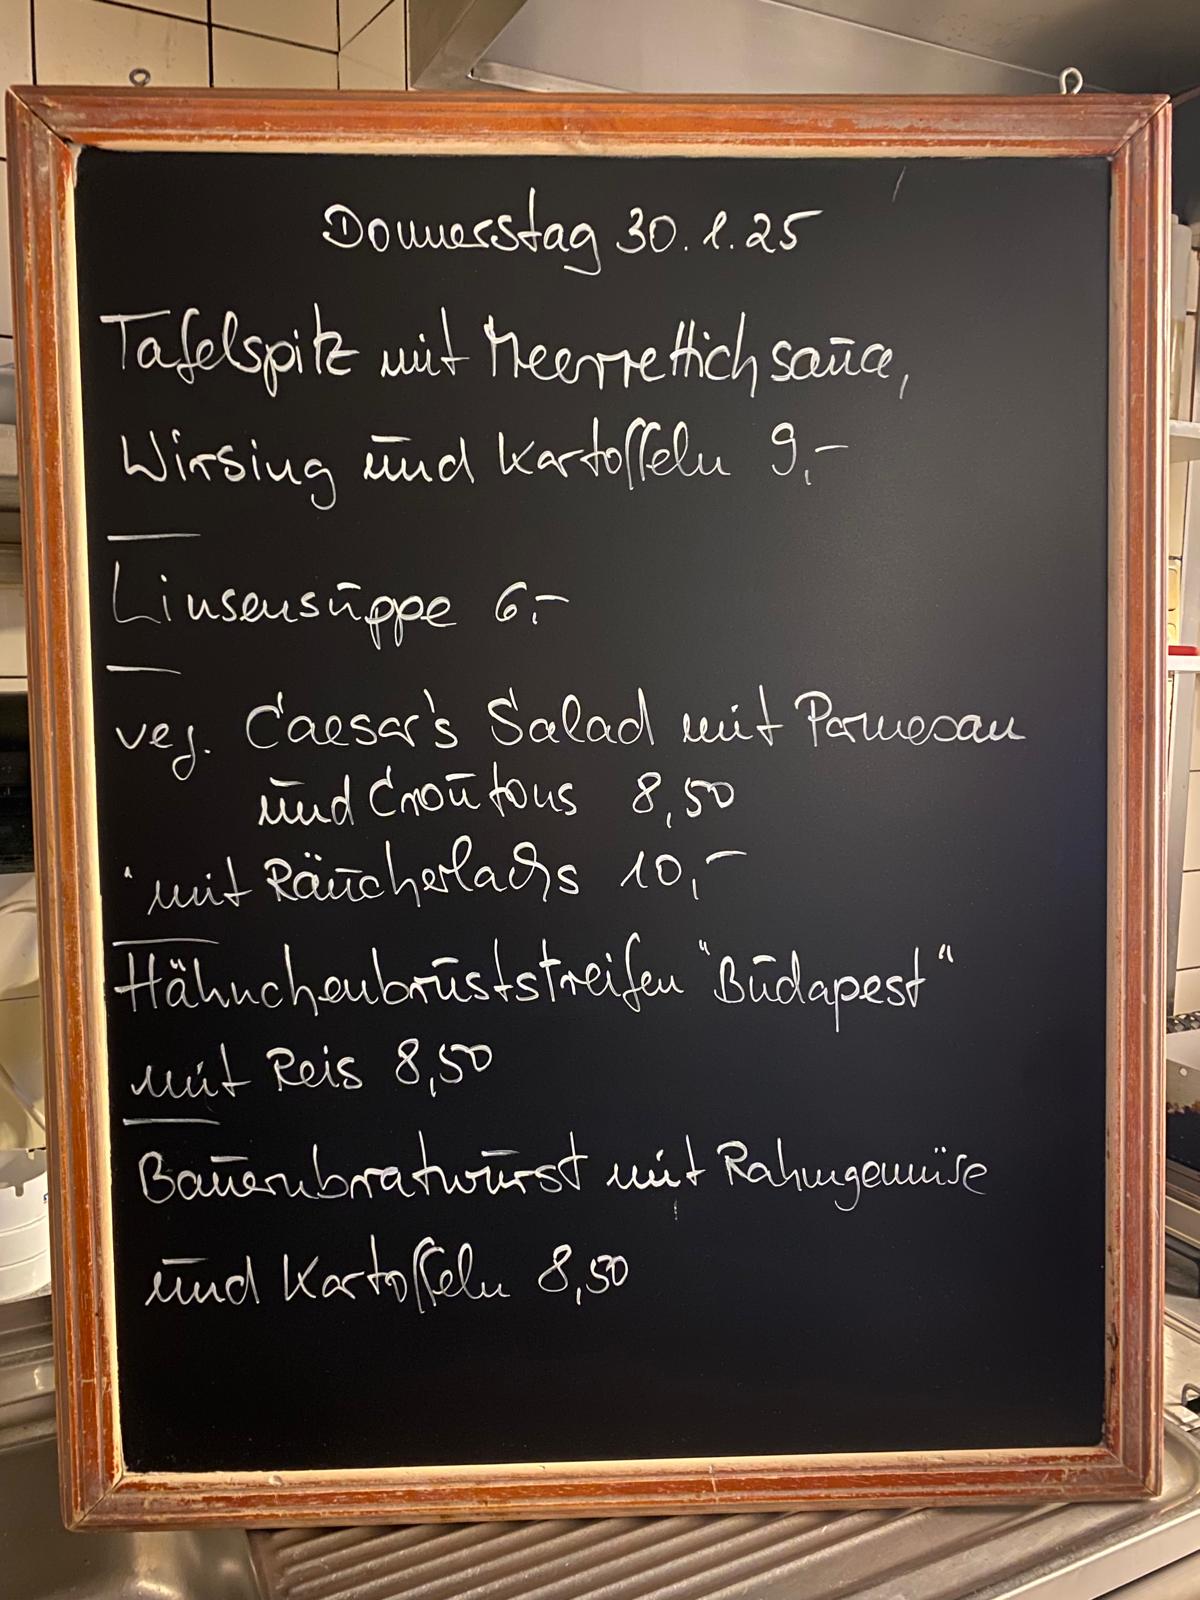 Donnerstag 30.1.25
Tafelspitz mit Meerrettichsauce,
Wirsing und Kartoffeln 9,-
Linsensuppe 6,-
veg. Caesar's Salad mit Parmesan
und Croutons 8,50
" mit Räucherlachs 10,-
Hähnchenbruststreifen "Budapest"
mit Reis 8,50
Bauernbratwurst mit Rahmgemüse
und Kartoffeln 8,50